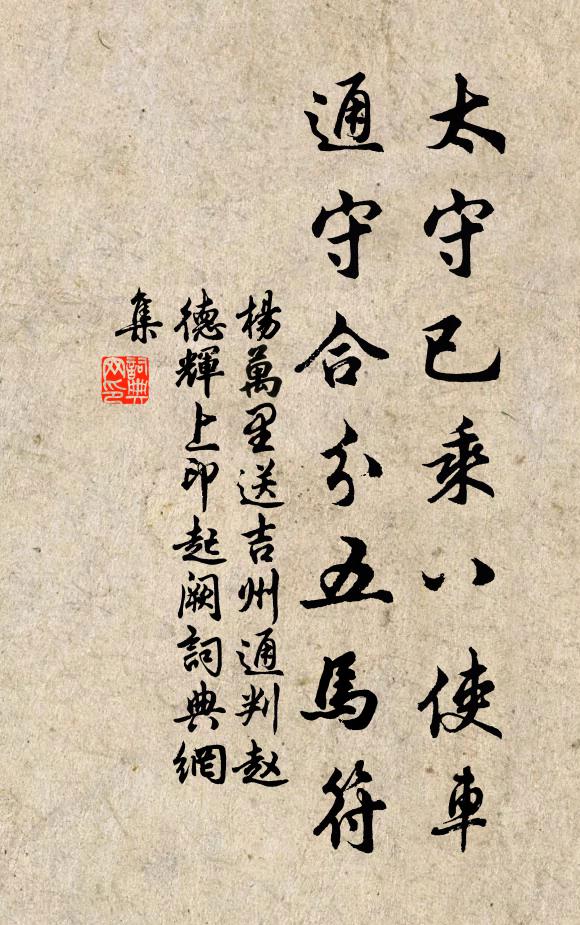 太守已乘八使車
通守合分五馬符
楊萬里送吉州通判赵
德輝上印起阙詞典網
集
詞典網印